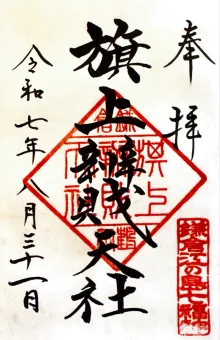 奉拝
旗上辨財天社
令和七年八月三十一日
鎌倉江の島七福神